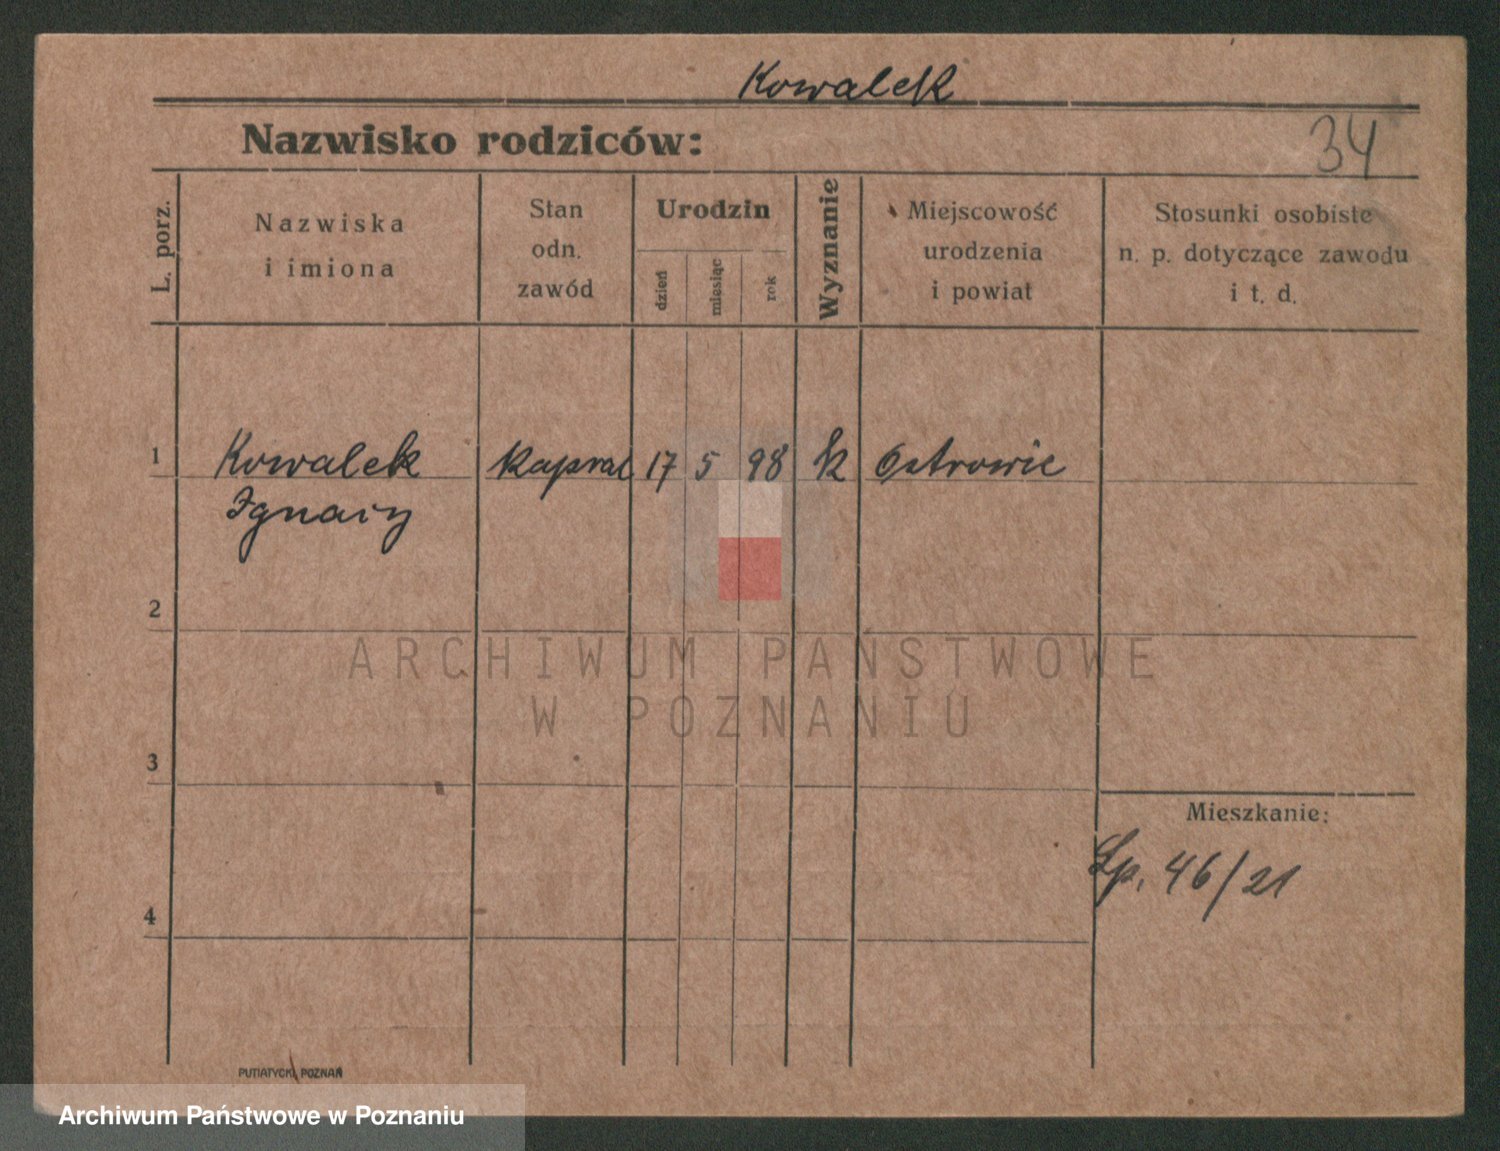 Kowalek
Nazwisko rodziców:
34
L. porz.
Nazwiska
i imiona
Stan
odn.
zawód
Urodzin
dzień
miesiąc
rok
Wyznanie
Miejscowość
urodzenia
i powiat
Stosunki osobiste
n. p. dotyczące zawodu
i t. d.
1 Kowalek Kapral 17 5 98 k Ostrowie
Ignacy
2
ARCHIWUM PAŃSTWOWE
W POZNANIU
3
Mieszkanie:
Lp. 46/21
4
PUTIATYCKI, POZNAŃ
Archiwum Państwowe w Poznaniu